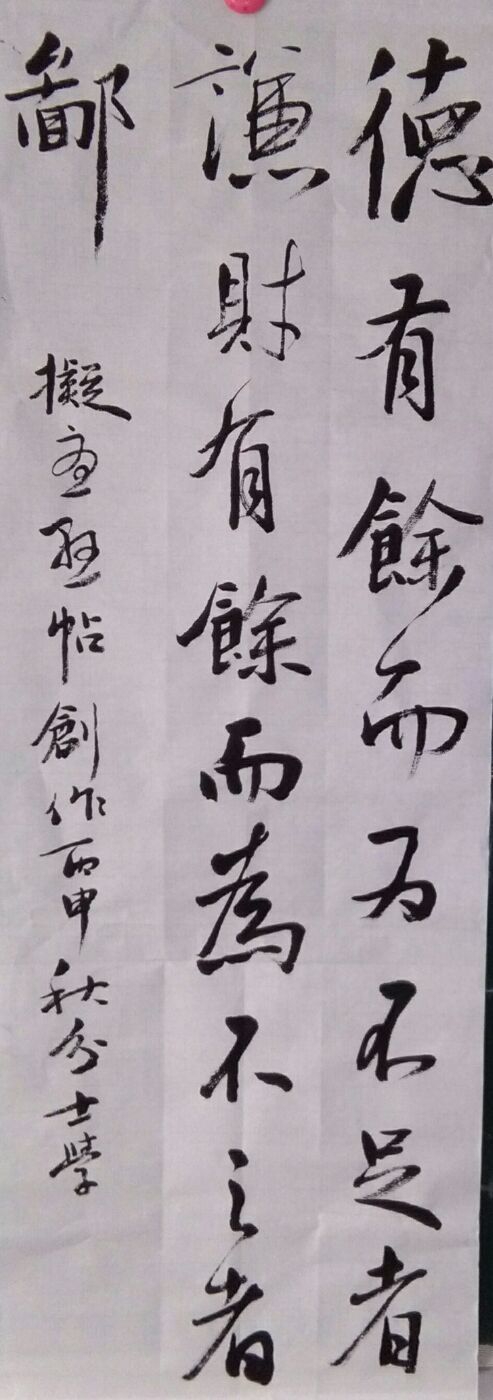 德有餘而为不足者
謙財有餘而為不足者
鄙
擬帖創作丙申秋分士學